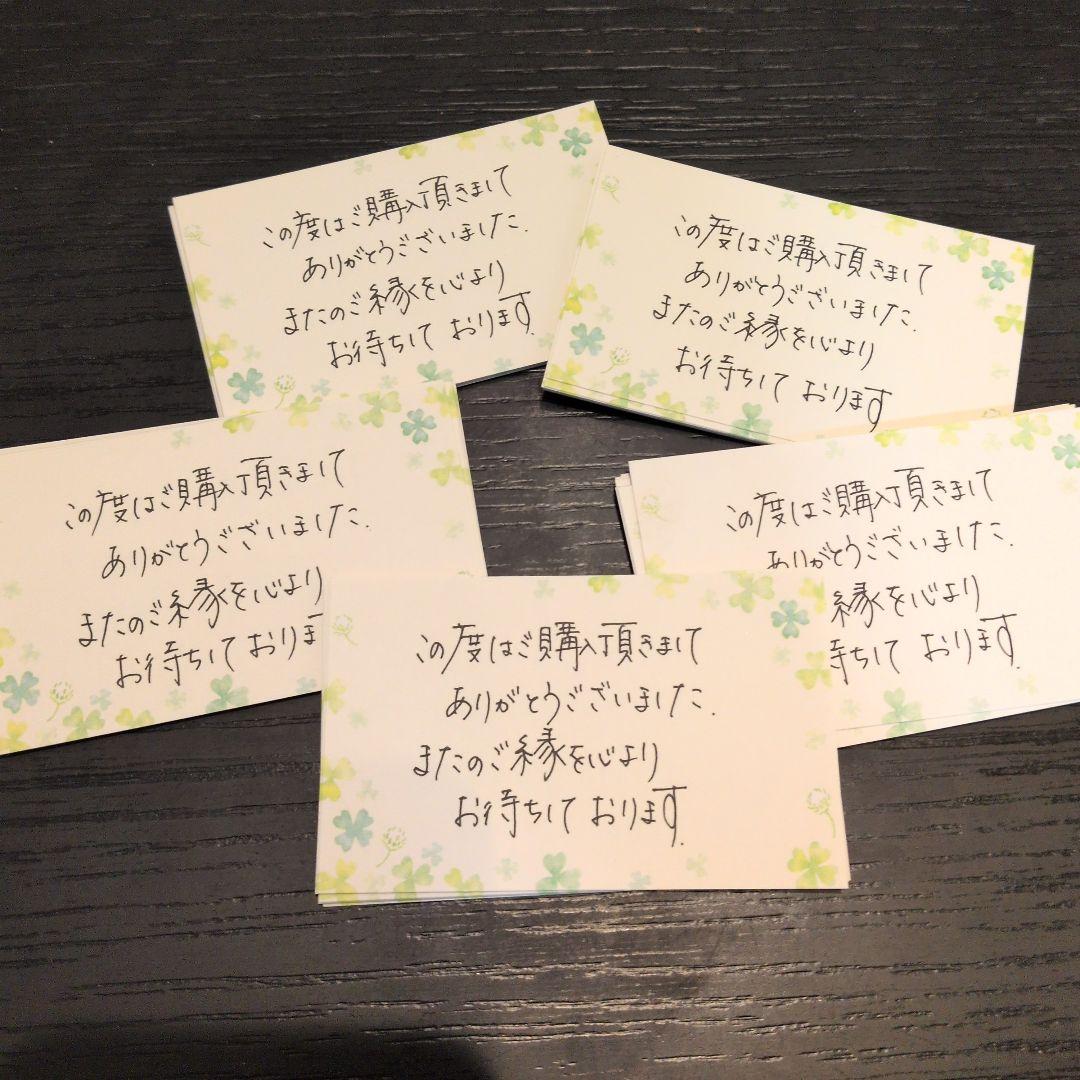 この度はご購入頂きまして
ありがとうございました.
またのご縁を心より
お待ちしております.
この度はご購入頂きまして
ありがとうございました.
またのご縁を心より
お待ちしております
この度はご購入頂きまして
ありがとうございました.
またのご縁を心より
お待ちしております
この度はご購入頂きまして
ありがとうございました.
縁を心より
待ちしております.
この度はご購入頂きまして
ありがとうございました.
またのご縁を心より
お待ちしております.